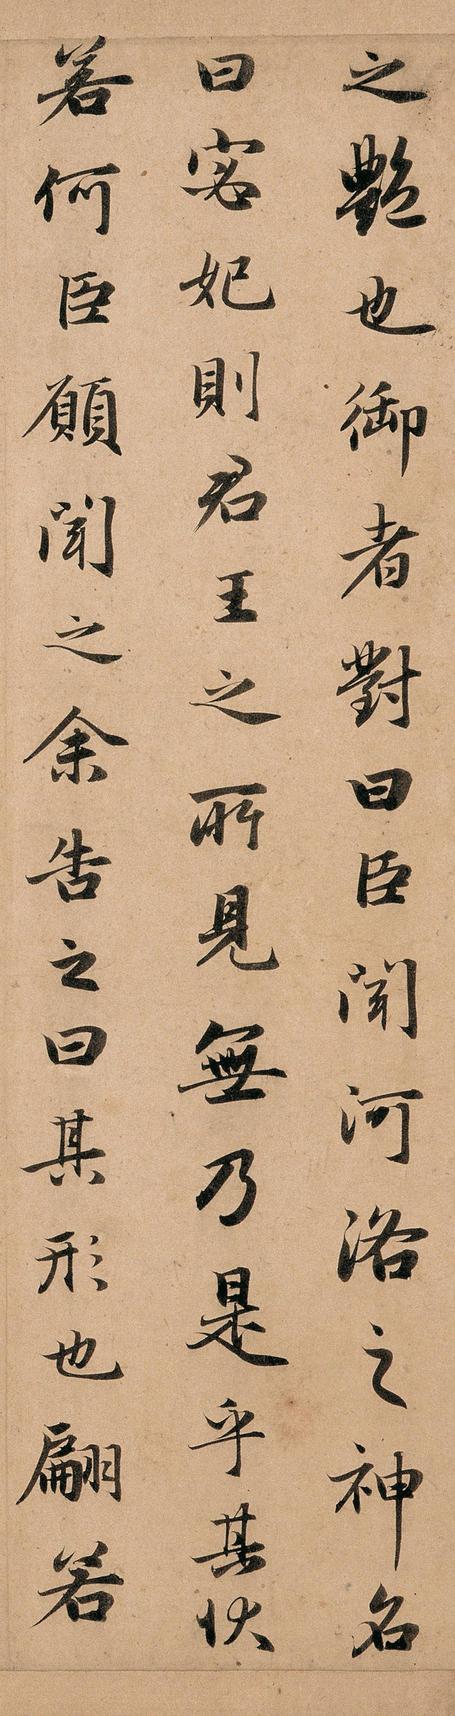 之艶也御者對曰臣聞河洛之神名
曰宓妃則君王之所見無乃是乎其状
若何臣願聞之余告之曰其形也翩若